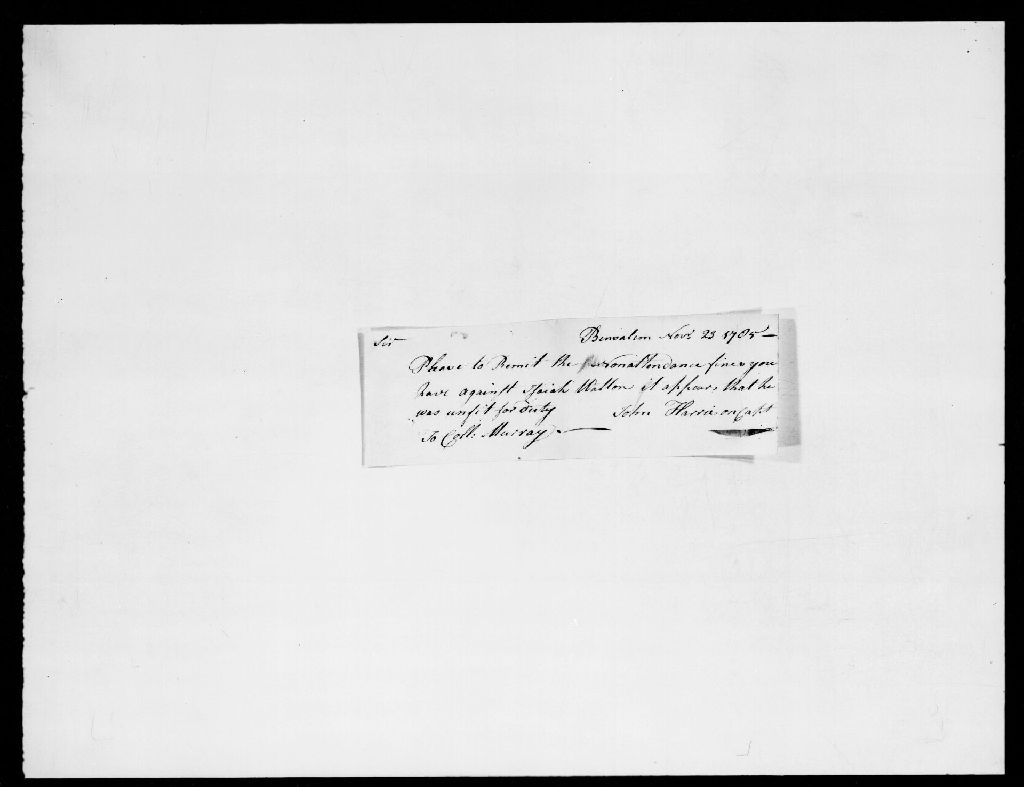 Sir Bensalem Novr 23 1785
Please to Remit the nonattendance fines you
have against Isaiah Walton it appears that he
was unfit for duty John Harrison Capt
To Coll. Murray